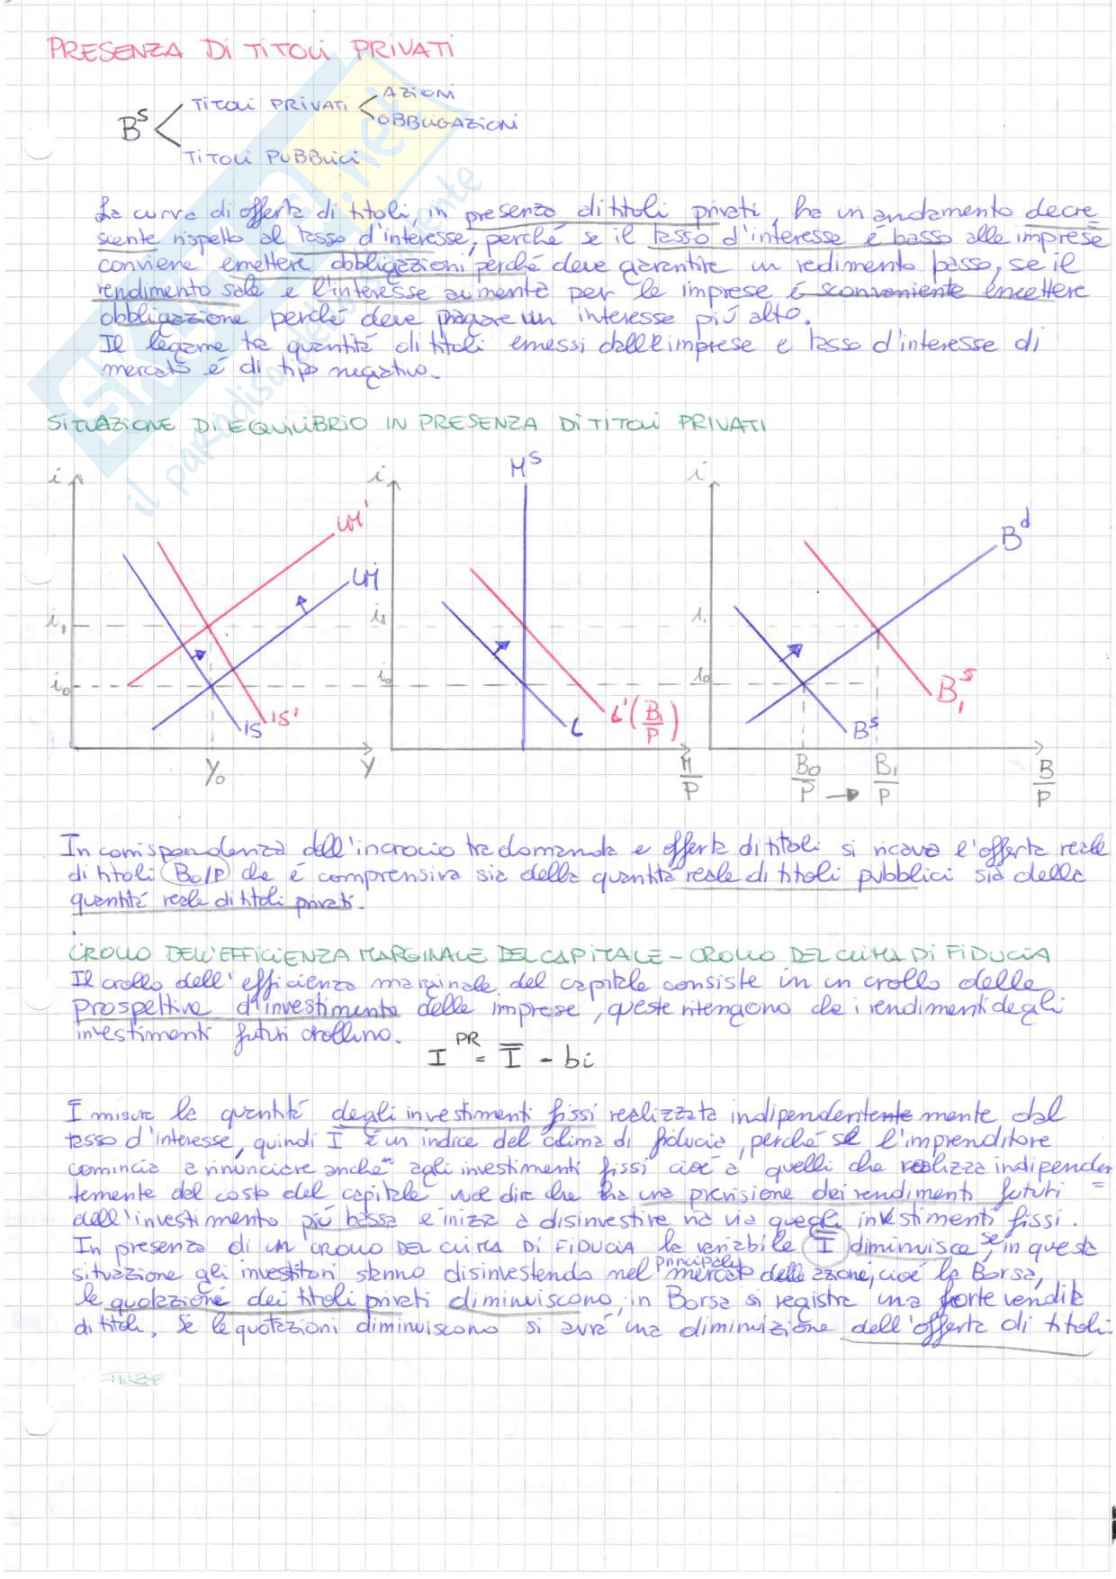 PRESENZA DI TITOLI PRIVATI
AZIONI
TITOLI PRIVATI
OBBLIGAZIONI
B^S
TITOLI PUBBLICI
La curva di offerta di titoli, in presenza di titoli privati, ha un andamento decre
scente rispetto al tasso d'interesse, perché se il tasso d'interesse è basso alle imprese
conviene emettere obbligazioni perché deve garantire un redimento basso, se il
rendimento sale e l'interesse aumenta per le imprese è sconveniente emettere
obbligazione perché deve pagare un interesse più alto.
Il legame tra quantità di titoli emessi dalle imprese e tasso d'interesse di
mercato è di tipo negativo.
SITUAZIONE DI EQUILIBRIO IN PRESENZA DI TITOLI PRIVATI
i i M^S i
LM' B^d
LM
i₁ i₁ i₁
i₀ i₀ i₀
IS IS' L L'(B₁/P) B^S B₁^S
Y₀ Y M/P B₀/P → B₁/P B/P
In corrispondenza dell'incrocio tra domanda e offerta di titoli si ricava l'offerta reale
di titoli (B₀/P) che è comprensiva sia della quantità reale di titoli pubblici sia della
quantità reale di titoli privati.
CROLLO DELL'EFFICIENZA MARGINALE DEL CAPITALE - CROLLO DEL CLIMA DI FIDUCIA
Il crollo dell'efficienza marginale del capitale consiste in un crollo delle
prospettive d'investimento delle imprese, queste ritengono che i rendimenti degli
investimenti futuri crollino.
I^PR = Ī - bi
Ī misura la quantità degli investimenti fissi realizzata indipendentemente dal
tasso d'interesse, quindi Ī è un indice del clima di fiducia, perché se l'imprenditore
comincia a rinunciare anche agli investimenti fissi cioè a quelli che realizza indipenden
temente dal costo del capitale vuol dire che ha una previsione dei rendimenti futuri
dell'investimento più bassa e inizia a disinvestire via via quegli investimenti fissi.
In presenza di un CROLLO DEL CLIMA DI FIDUCIA la variabile Ī diminuisce, se in questa
situazione gli investitori stanno disinvestendo nel principale mercato delle azioni, cioè la Borsa,
le quotazione dei titoli privati diminuiscono, in Borsa si registra una forte vendita
di titoli, se le quotazioni diminuiscono si avrà una diminuizione dell'offerta di titoli.
il paradiso dello studente